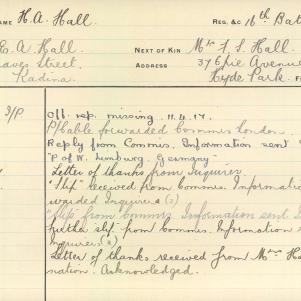 NAME H.A. Hall. REG. &c 16th Bat
E. A. Hall. NEXT OF KIN Mr F. S. Hall.
Graves Street, ADDRESS 37 Opie Avenue
Kadina. Hyde Park.
I/P Off. rep. missing 11.4.17.
P/Cable forwarded Commrs London.
Reply from Commrs. Information sent
"P. of W. Limburg, Germany"
Letter of thanks from Inquirer
"Slip" received from Commrs. Informatio
warded Inquirers (2)
"Slip from Commrs Information sent I
further slip" from Commrs. Information s
Inquirers (2)
Letter of thanks received from Mrs Ha
nation. Acknowledged.